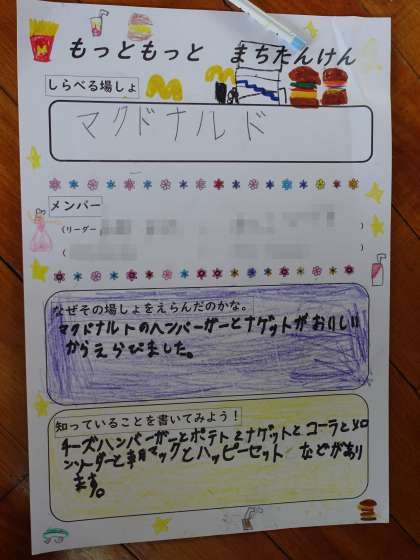 もっともっと まちたんけん
しらべる場しょ
マクドナルド
メンバー
(リーダー
)
(
)
なぜその場しょをえらんだのかな。
マクドナルドのハンバーガーとナゲットがおいしい
からえらびました。
知っていることを書いてみよう!
チーズハンバーガーとポテトとナゲットとコーラとメロ
ンソーダーと朝マックとハッピーセット などがあり
ます。